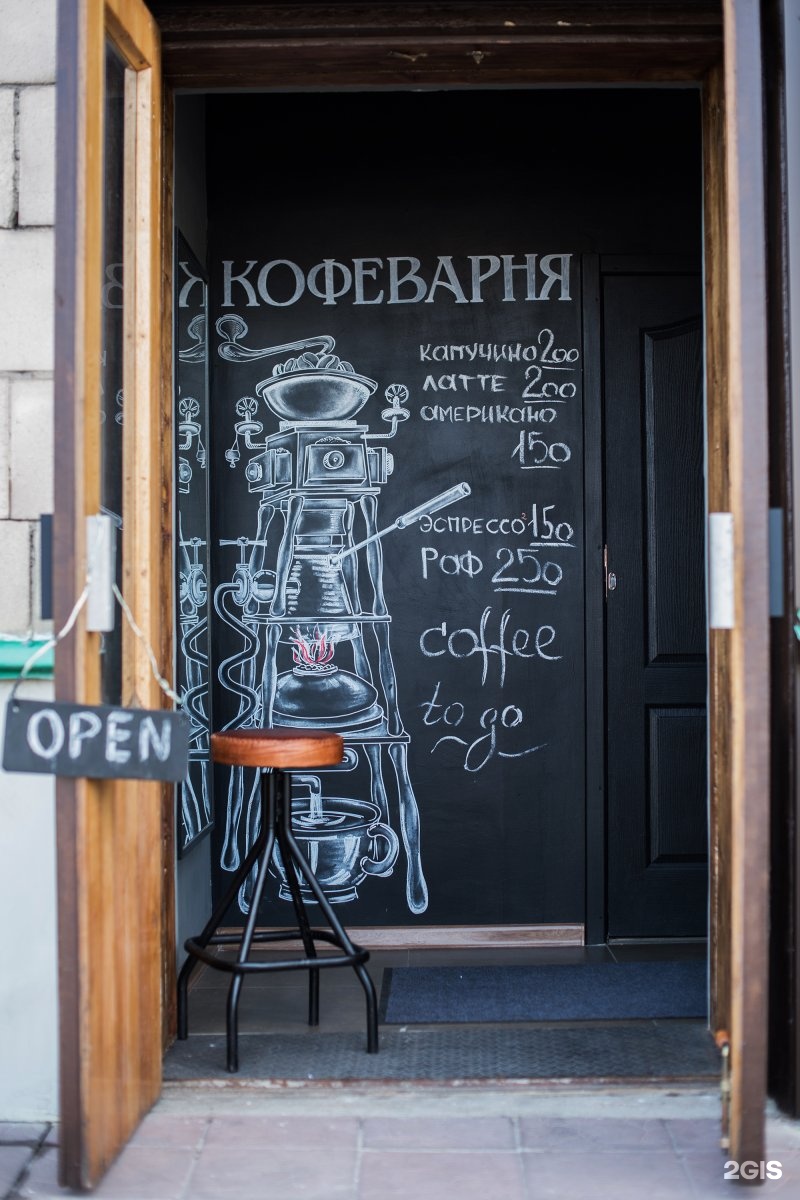 КОФЕВАРНЯ
капучино 200
латте 200
американо
150
эспрессо 150
Раф 250
coffee
to go
OPEN
2GIS